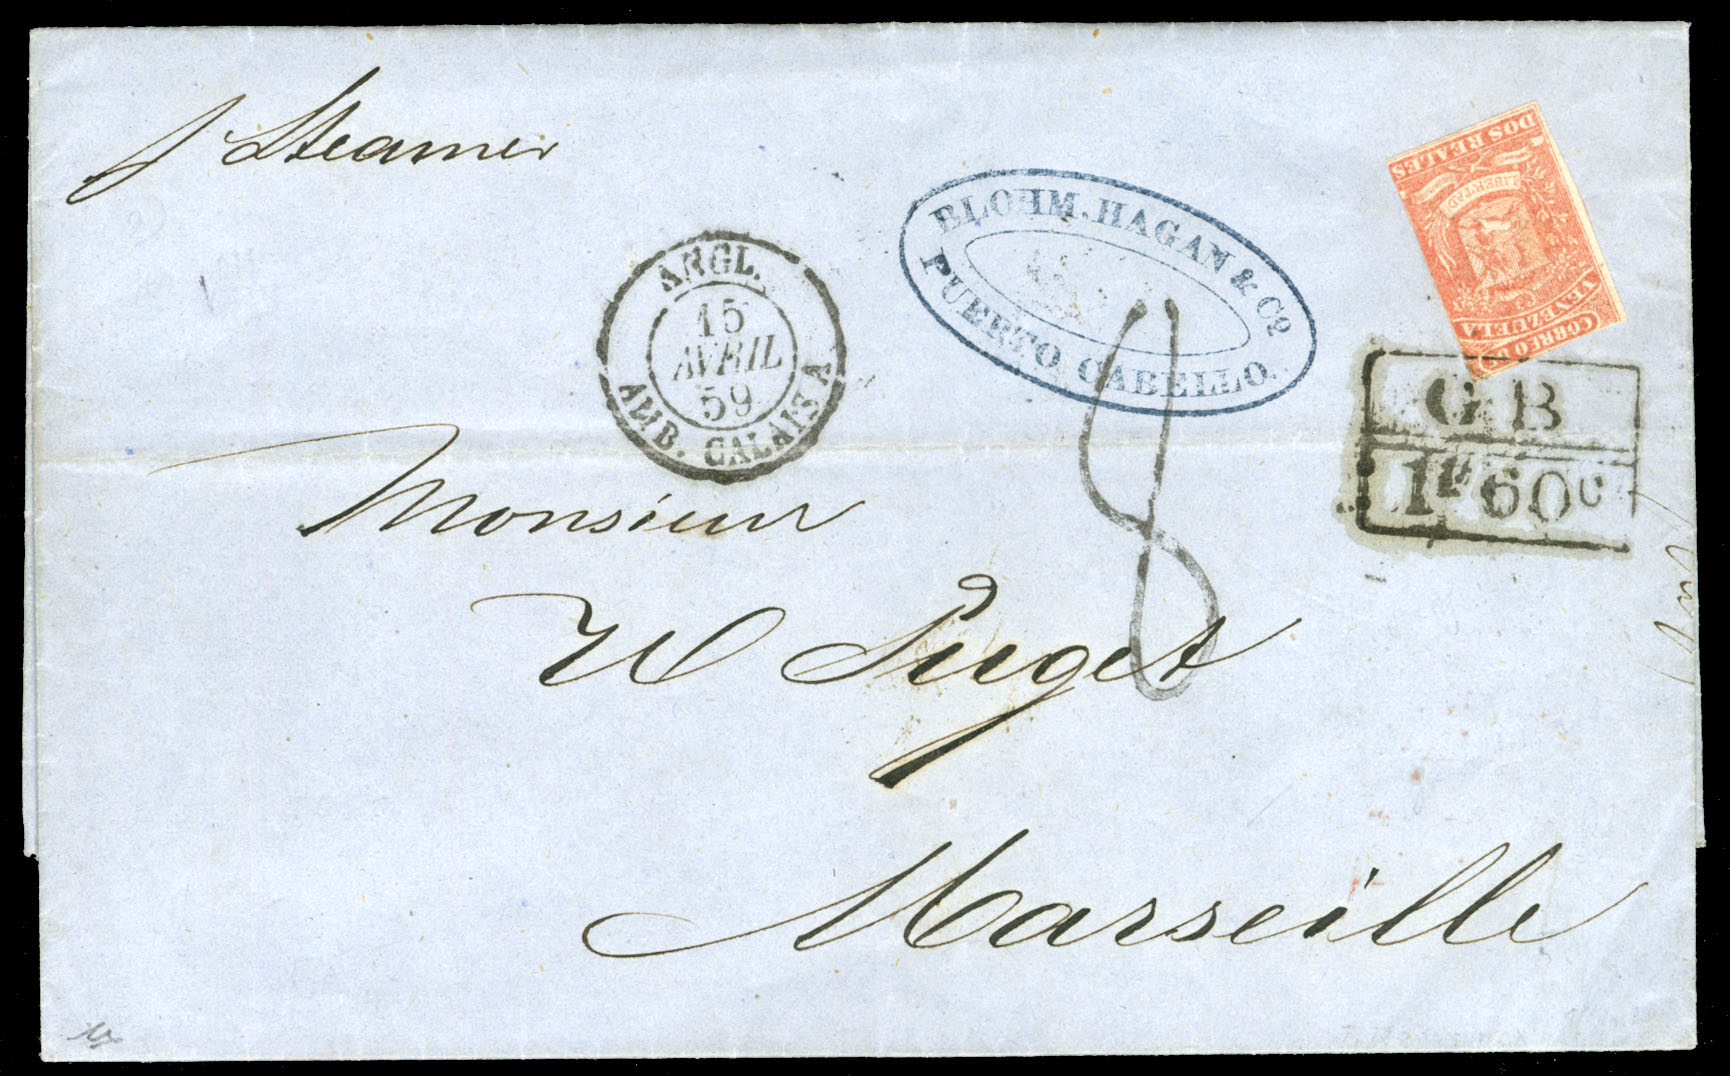 p Steamer
ANGL.
15
AVRIL
59
AMB. CALAIS A
BLOHM, HAGAN & Cº
PUERTO CABELLO.
DOS REALES
LIBERTAD
CORREO DE
VENEZUELA
GB
1f60c
8
Monsieur
W Puget
Marseille